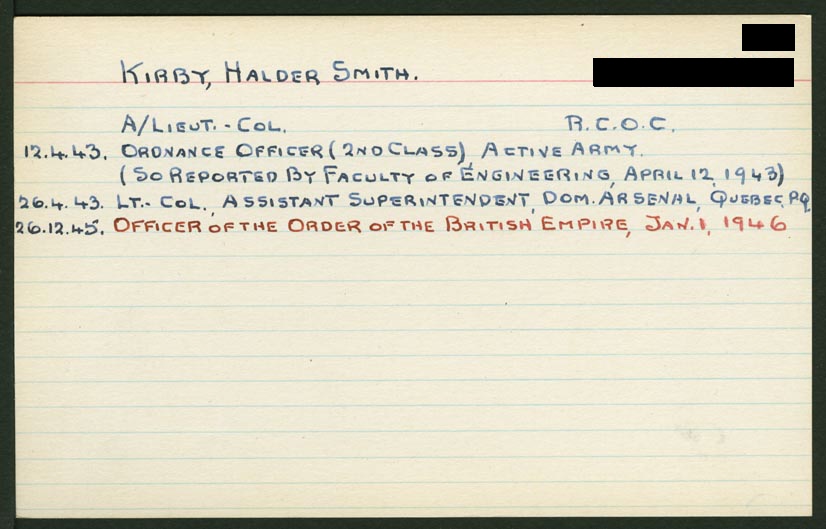 KIRBY, HALDER SMITH.
A/LIEUT.-COL. R.C.O.C.
12.4.43. ORDNANCE OFFICER (2ND CLASS), ACTIVE ARMY.
(SO REPORTED BY FACULTY OF ENGINEERING, APRIL 12, 1943)
26.4.43. LT.-COL., ASSISTANT SUPERINTENDENT, DOM. ARSENAL, QUEBEC, PQ.
26.12.45. OFFICER OF THE ORDER OF THE BRITISH EMPIRE, JAN. 1, 1946